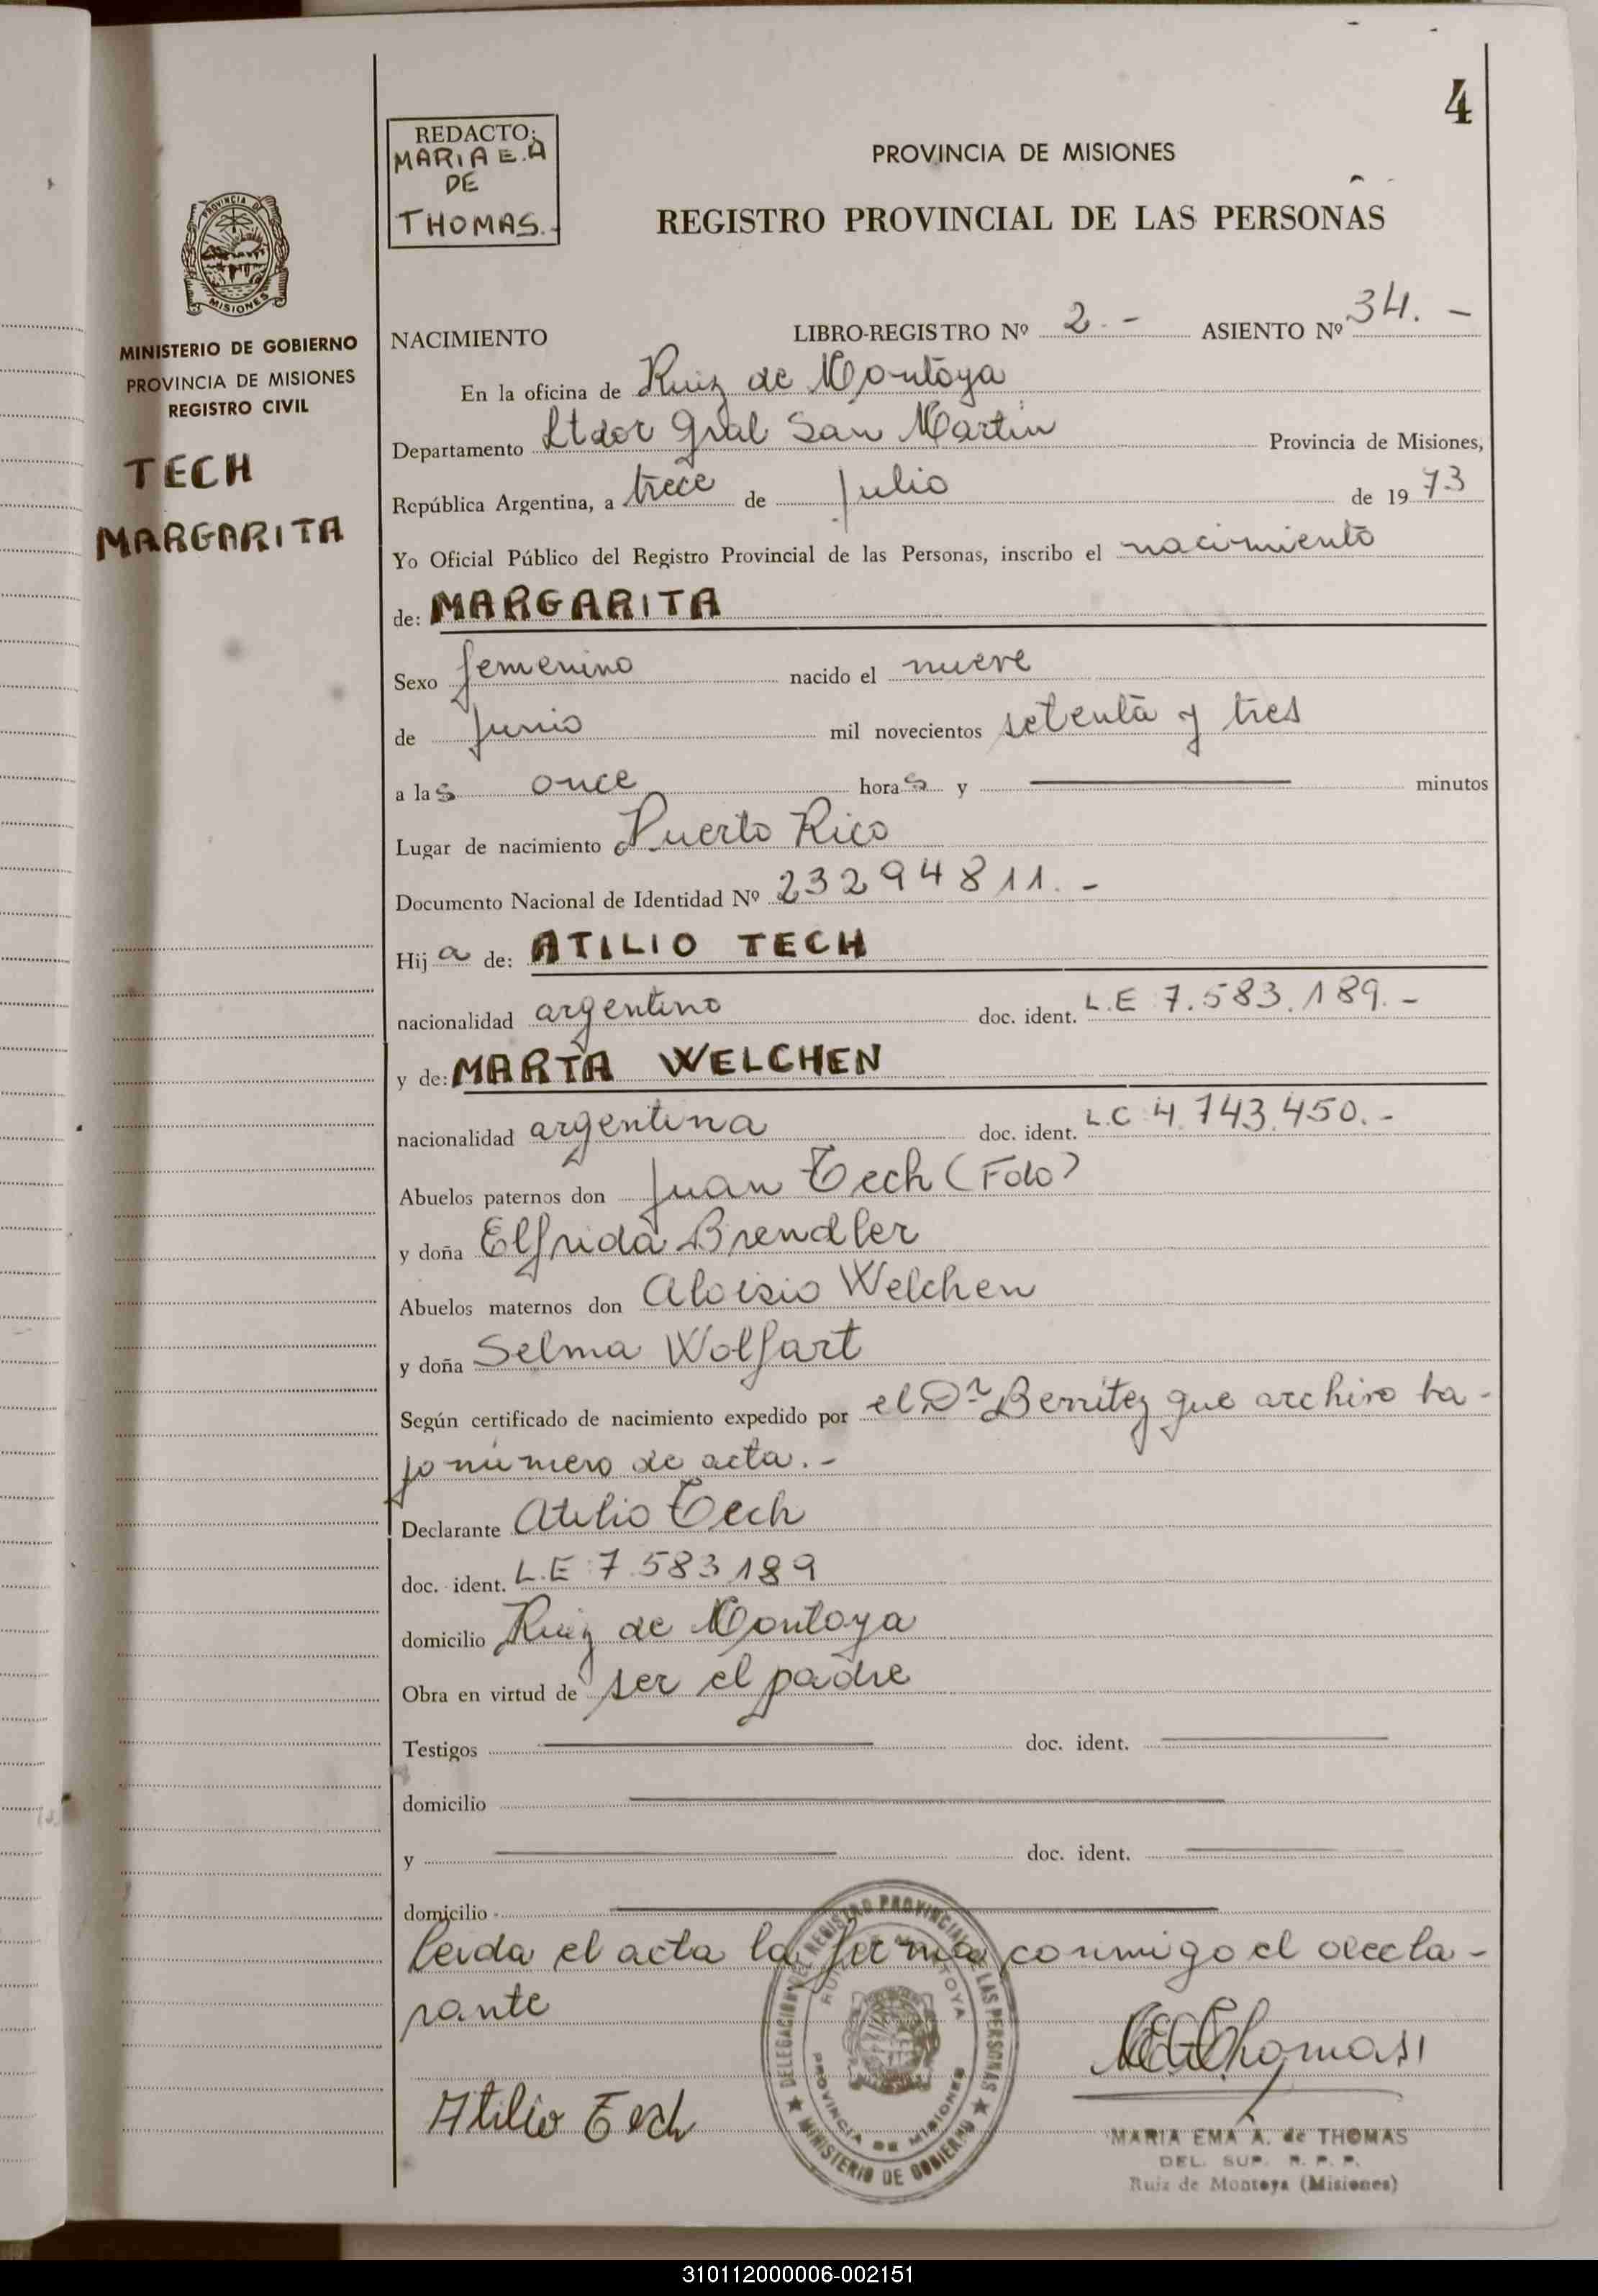 4
REDACTO:
MARIA E. A
DE
THOMAS.-
PROVINCIA DE MISIONES
REGISTRO PROVINCIAL DE LAS PERSONAS
PROVINCIA DE
MISIONES
MINISTERIO DE GOBIERNO
PROVINCIA DE MISIONES
REGISTRO CIVIL
TECH
MARGARITA
NACIMIENTO LIBRO-REGISTRO Nº 2.- ASIENTO Nº 34.-
En la oficina de Ruiz de Montoya
Departamento Ltdor Gral San Martin Provincia de Misiones,
República Argentina, a trece de Julio de 1973
Yo Oficial Público del Registro Provincial de las Personas, inscribo el nacimiento
de: MARGARITA
Sexo femenino nacido el nueve
de Junio mil novecientos setenta y tres
a las once horas y minutos
Lugar de nacimiento Puerto Rico
Documento Nacional de Identidad Nº 23294811.-
Hija de: ATILIO TECH
nacionalidad argentino doc. ident. L.E 7.583.189.-
y de: MARTA WELCHEN
nacionalidad argentina doc. ident. L.C 4.743.450.-
Abuelos paternos don Juan Tech (Fdo)
y doña Elfrida Brendler
Abuelos maternos don Aloisio Welchen
y doña Selma Wolfart
Según certificado de nacimiento expedido por el Dr Benitez que archivo ba-
jo número de acta.-
Declarante Atilio Tech
doc. ident. L.E 7.583.189
domicilio Ruiz de Montoya
Obra en virtud de ser el padre
Testigos doc. ident.
domicilio
y doc. ident.
domicilio
Leida el acta la firma conmigo el decla-
rante
DELEGACION DEL REGISTRO PROVINCIAL DE LAS PERSONAS
RUIZ DE MONTOYA
PROVINCIA DE MISIONES
MINISTERIO DE GOBIERNO
Atilio Tech
MARIA EMA A. de THOMAS
DEL. SUP. R. P. P.
Ruiz de Montoya (Misiones)
310112000006-002151